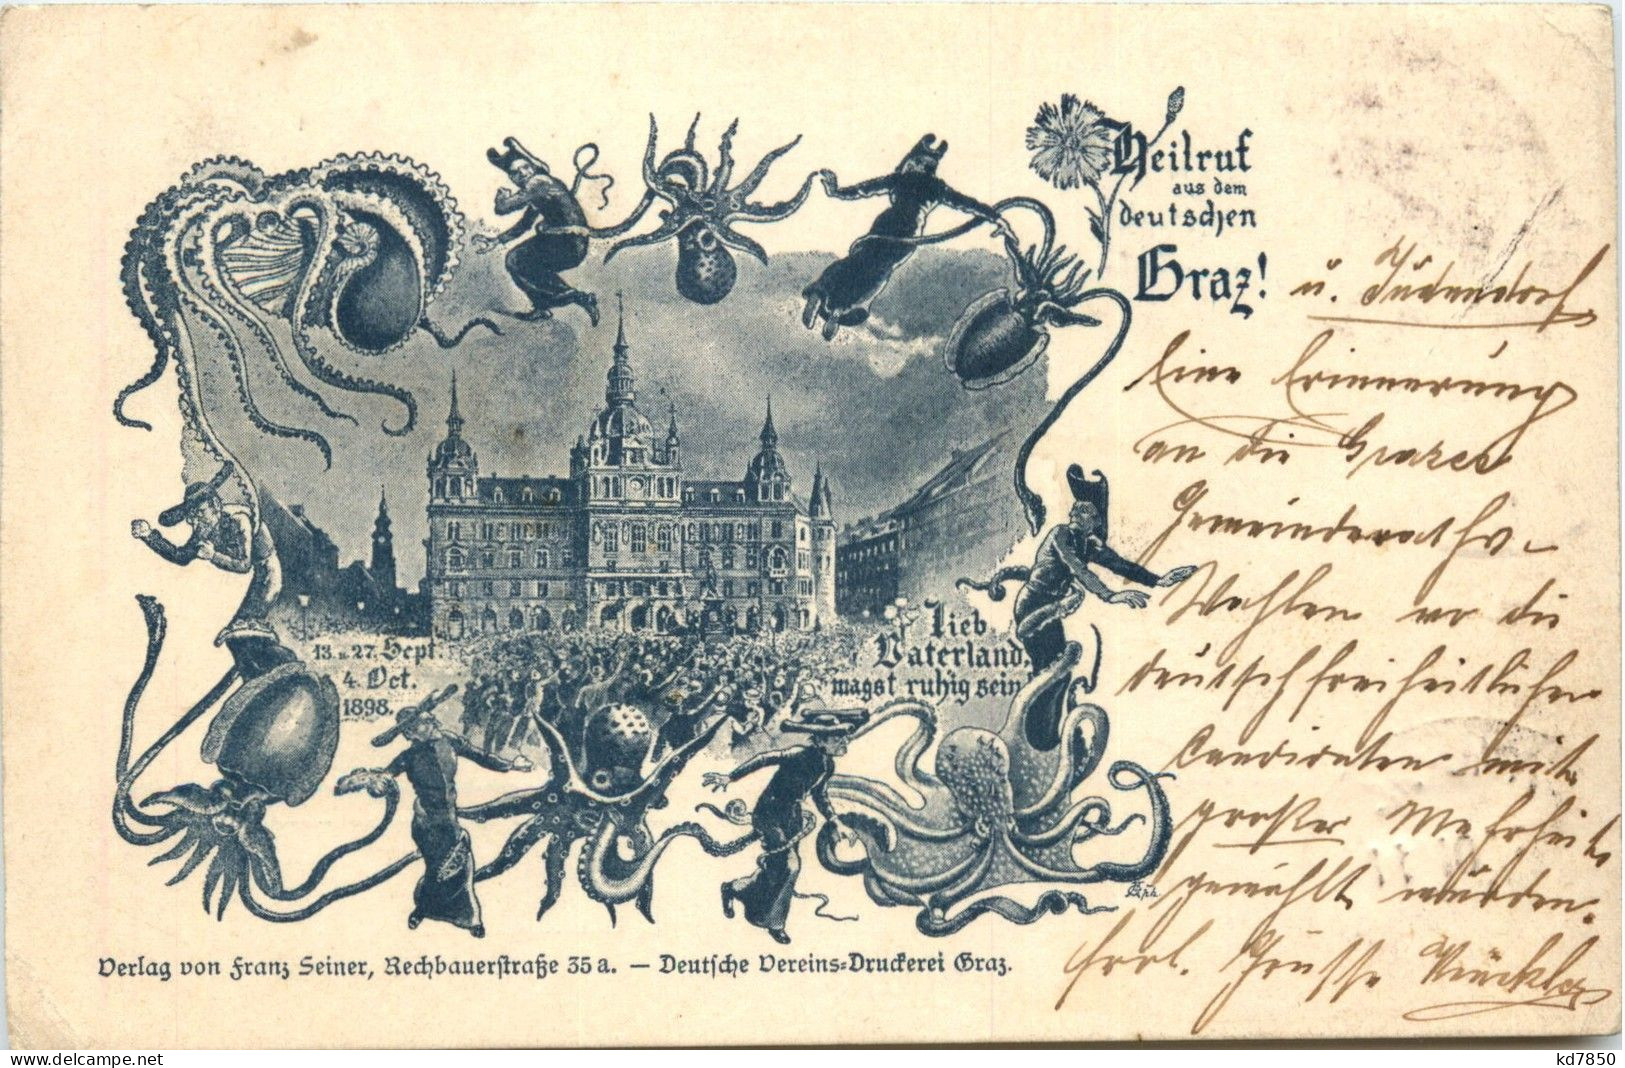 Heilruf
aus dem
deutschen
Graz!
u. Judendorf
Eine Erinnerung
an die Grazer
Gemeinderaths-
Wahlen wo die
deutschfreiheitlichen
Candidaten mit
großer Mehrheit
gewählt wurden.
Grüsse
13. u. 27. Sept.
4. Oct.
1898.
Lieb
Vaterland,
magst ruhig sein!
Verlag von Franz Seiner, Rechbauerstraße 35a. — Deutsche Vereins=Druckerei Graz.
www.delcampe.net
kd7850